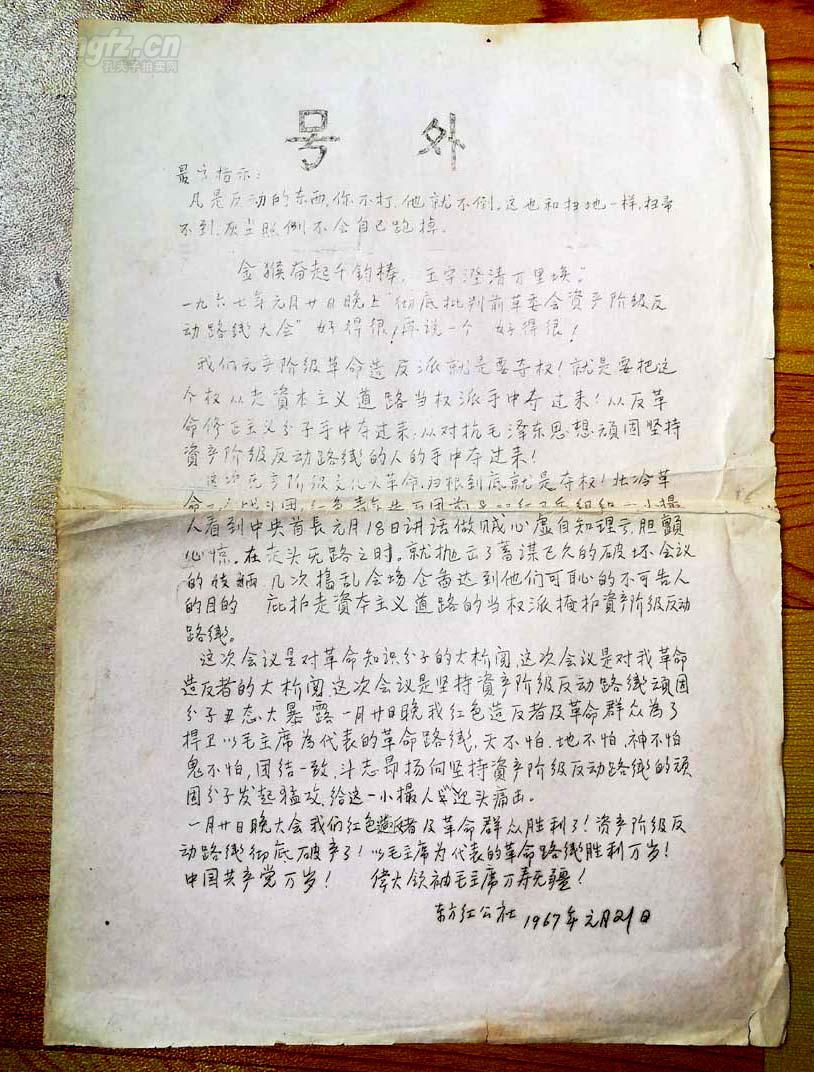 gfz.cn
孔夫子拍卖网
号外
最高指示：
凡是反动的东西，你不打，他就不倒。这也和扫地一样，扫帚
不到，灰尘照例不会自己跑掉。
金猴奋起千钧棒，玉宇澄清万里埃。"
一九六七年元月廿日晚上"彻底批判前革委会資产阶级反
动路线大会"好得很！再说一个 好得很！
我们无产阶级革命造反派就是要夺权！就是要把这
个权从走資本主义道路当权派手中夺过来！从反革
命修正主义分子手中夺过来，从对抗毛泽东思想，頑固坚持
資产阶级反动路线的人的手中夺过来！
这次无产阶级文化大革命，归根到底就是夺权！
一小撮
人看到中央首長元月18日讲话做贼心虚自知理亏，胆顫
心惊。在走头无路之时。就抛出了蓄谋已久的破坏会议
的伎俩 几次搗乱会場企畜达到他们可恥的不可告人
的目的 庇护走資本主义道路的当权派掩护資产阶级反动
路线。
这次会议是对革命知识分子的大检阅，这次会议是对我革命
造反者的大检阅，这次会议是坚持資产阶级反动路线頑固
分子丑态大暴露 一月廿日晚我红色造反者及革命群众為了
捍卫以毛主席為代表的革命路线，天不怕，地不怕，神不怕
鬼不怕，团结一致，斗志昂扬向坚持資产阶级反动路线的頑
固分子发起猛攻，给这一小撮人以迎头痛击。
一月廿日晚大会我们红色造反者及革命群众胜利了！資产阶级反
动路线彻底破产了！以毛主席为代表的革命路线胜利万岁！
中国共产党万岁！ 偉大领袖毛主席万寿无疆！
东方红公社 1967年元月21日